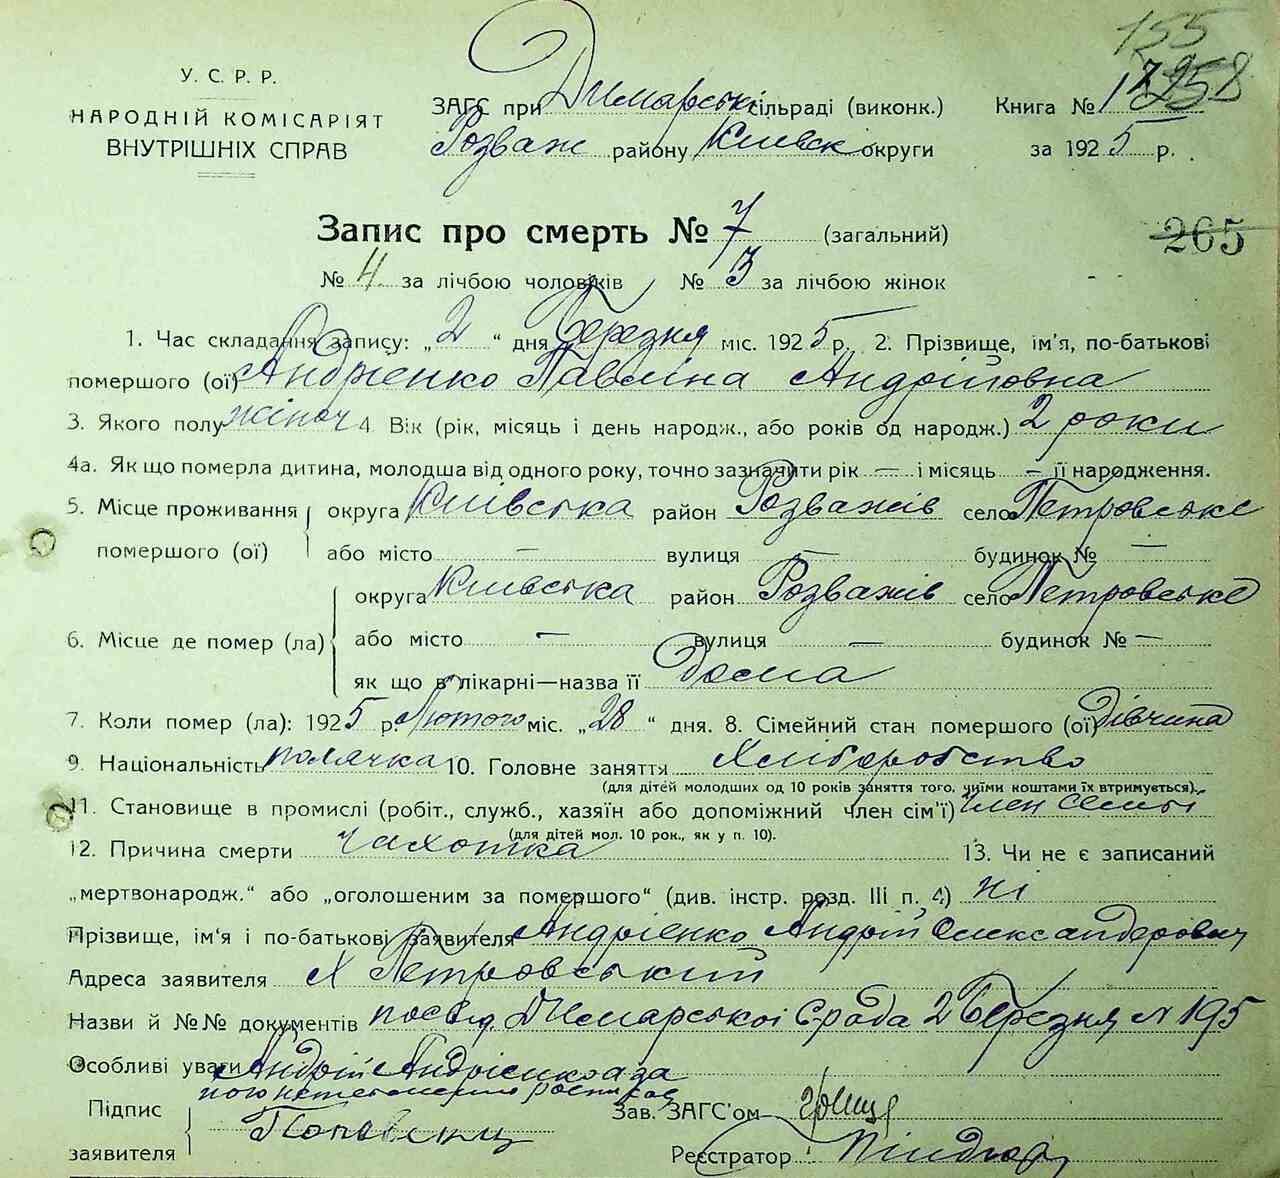 155
1258
У. С. Р. Р.
НАРОДНІЙ КОМІСАРІЯТ
ВНУТРІШНІХ СПРАВ
ЗАГС при Димарські сільраді (виконк.)
Розваж району Київск округи
Книга № 1
за 1925 р.
Запис про смерть № 7 (загальний)
265
№ 4 за лічбою чоловіків № 3 за лічбою жінок
1. Час складання запису: „2“ дня Березня міс. 1925 р. 2. Прізвище, ім'я, по-батькові
помершого (ої) Андрієнко Павлина Андрійовна
3. Якого полу жіноч 4. Вік (рік, місяць і день народж., або років од народж.) 2 роки
4а. Як що померла дитина, молодша від одного року, точно зазначити рік — і місяць — її народження.
5. Місце проживання помершого (ої) округа Київська район Розважів село Петровське
або місто — вулиця — будинок № —
6. Місце де помер (ла) округа Київська район Розважів село Петровське
або місто — вулиця — будинок № —
як що в лікарні—назва її Дома
7. Коли помер (ла): 1925 р. Лютого міс. „28“ дня. 8. Сімейний стан помершого (ої) Дівчина
9. Національність полячка 10. Головне заняття Хліборобство
(для дітей молодших од 10 років заняття того, чиїми коштами їх втримується).
11. Становище в промислі (робіт., служб., хазяїн або допоміжний член сім'ї) член семьі
(для дітей мол. 10 рок., як у п. 10).
12. Причина смерти чахотка 13. Чи не є записаний
„мертвонародж.“ або „оголошеним за помершого“ (див. інстр. розд. III п. 4) ні
Прізвище, ім'я і по-батькові заявителя Андрієнко Андрій Олександерович
Адреса заявителя х Петровський
Назви й №№ документів посвід Димарської Срада 2 Березня N 195
Особливі уваги Андрій Андрієнко а за
його
Підпис
заявителя
Зав. ЗАГС'ом
Реєстратор